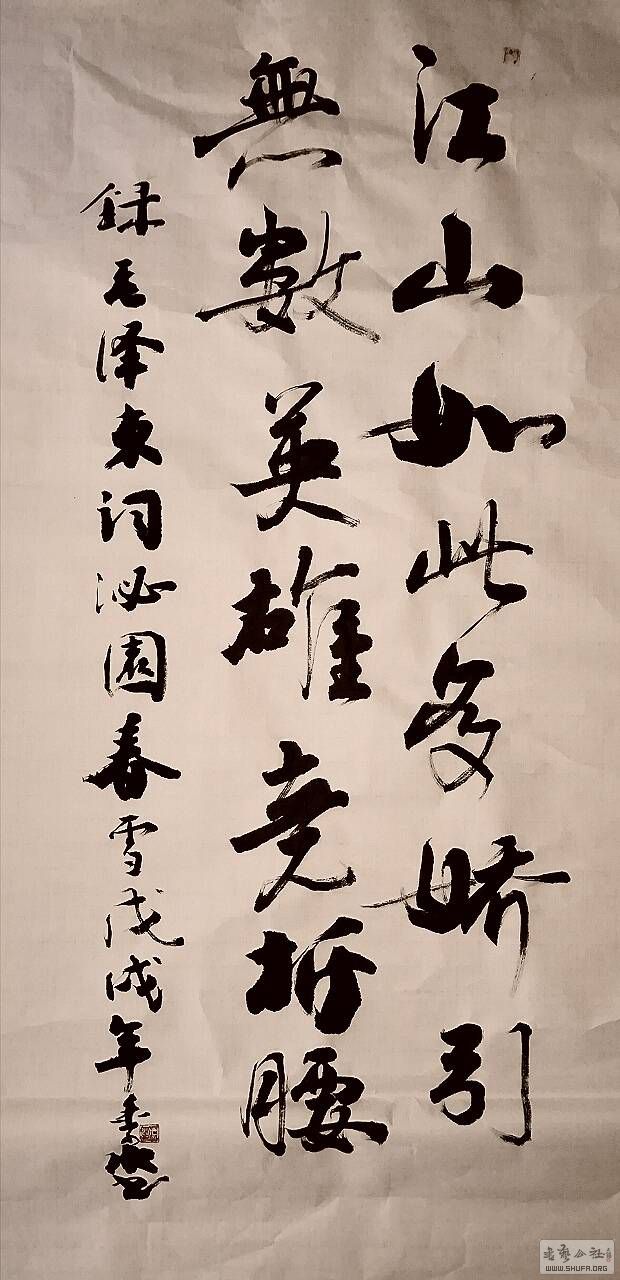 江山如此多娇引
無數英雄竞折腰
録毛泽東词泌園春雪戊戌年
書藝公社
WWW.SHUFA.ORG